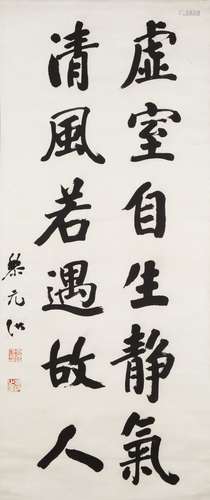 虛室自生靜氣
清風若遇故人
黎元洪